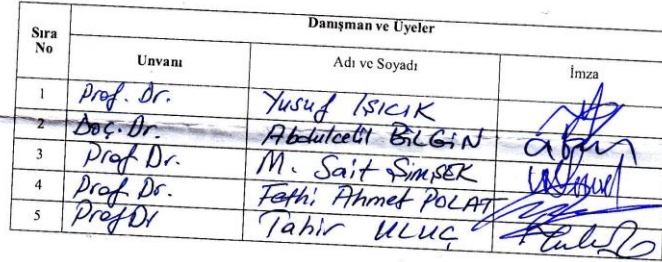 Danışman ve Üyeler
Sıra No Unvanı Adı ve Soyadı İmza
1 Prof. Dr. Yusuf IŞICIK
2 Doç. Dr. Abdulcelil BİLGİN
3 Prof Dr. M. Sait ŞİMŞEK
4 Prof Dr. Fethi Ahmet POLAT
5 Prof Dr Tahir ULUÇ